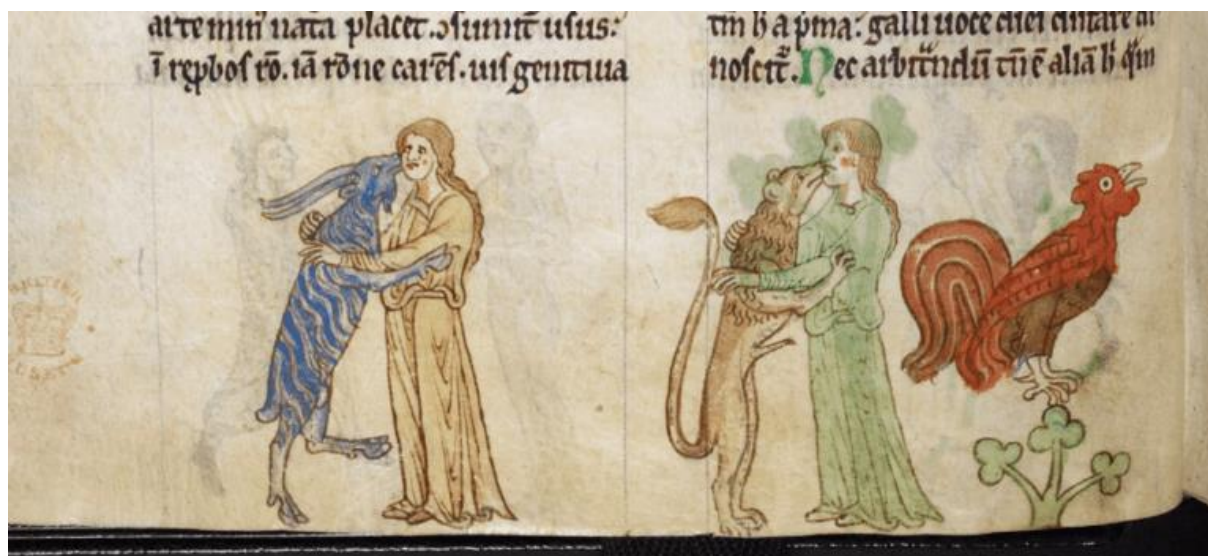 arte min' uata placet. ɔsumit usus:
ī reꝓbos rō. iā rōne carēs. uis genitiua
tm̄ h̄ a pͥma: galli uoce diei
noscit᷑. Nec arbitᷓndū tn̄ ē aliā h̄